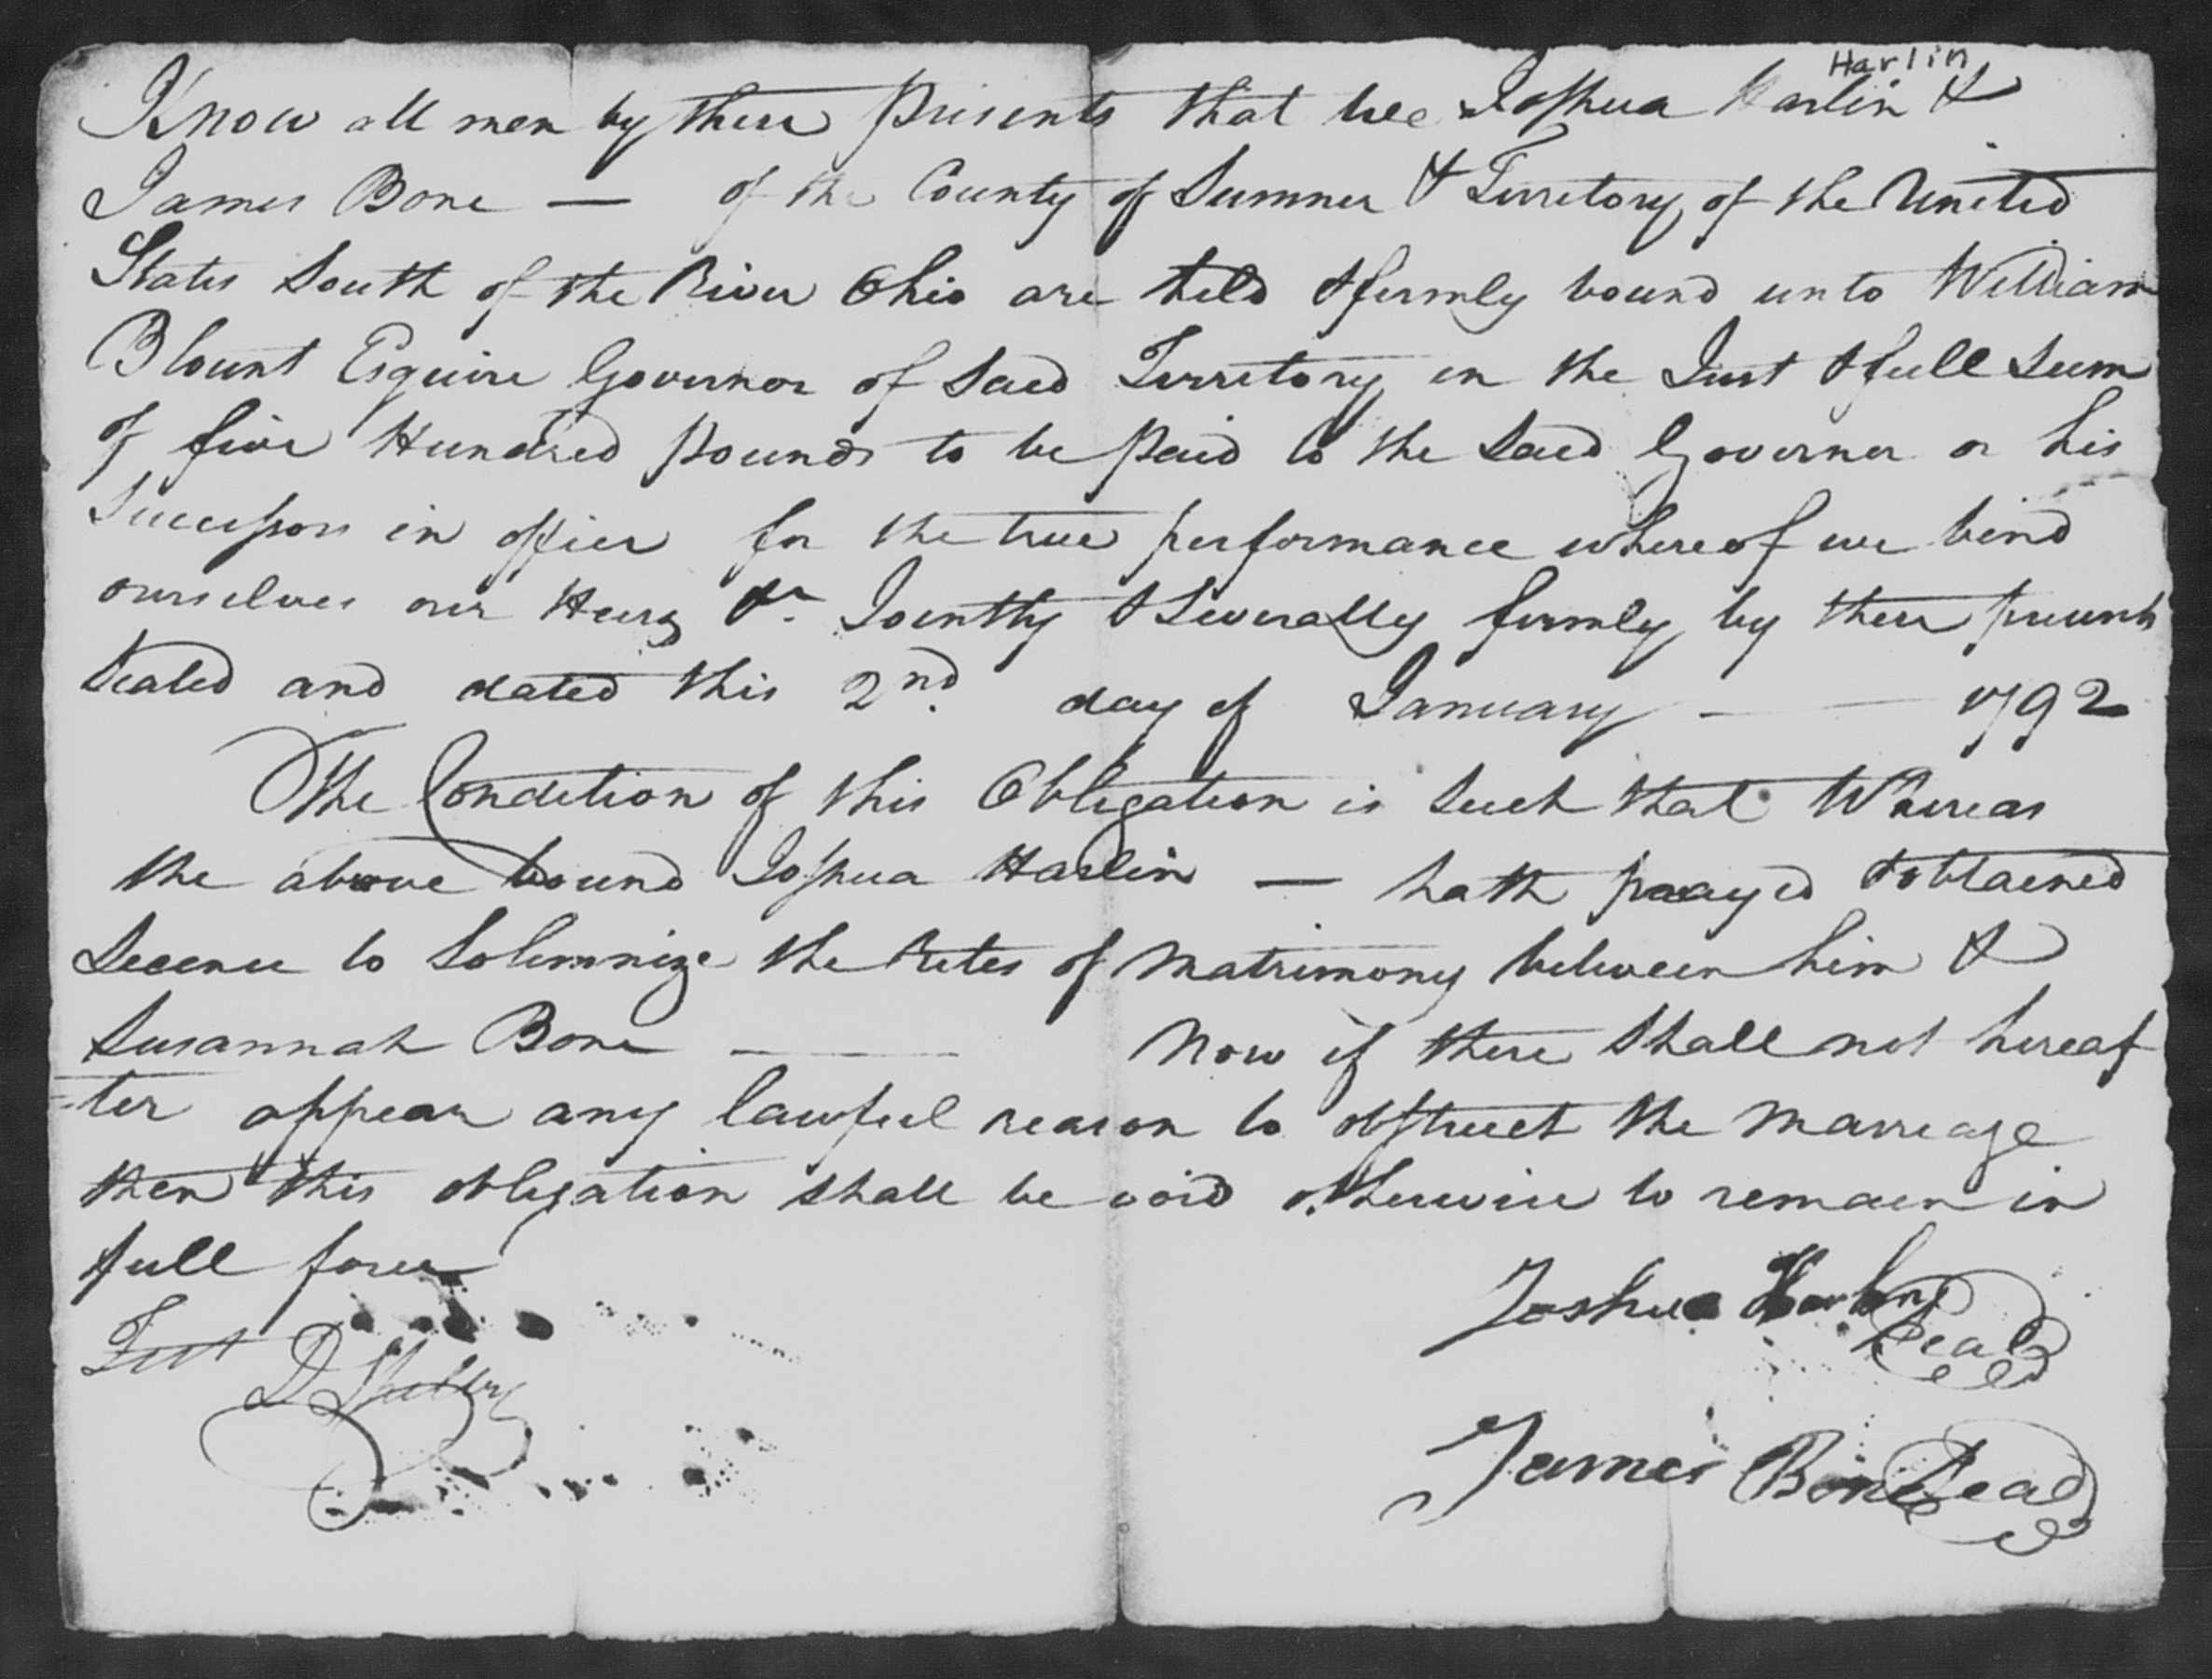 Harlin
Know all men by these presents that wee Joshua Harlin &
James Bone — of the County of Sumner & Territory of the United
States South of the River Ohio are held & firmly bound unto William
Blount Esquire Governor of Said Territory in the Just & full Sum
of five Hundred pounds to be paid to the Said Governor or his
Successors in office for the true performance whereof we bind
ourselves our Heirs &c Jointly & Severally firmly by these presents
Sealed and dated this 2nd. day of January — — 1792
The Condition of this Obligation is Such that Whereas
the above bound Joshua Harlin — hath prayed & obtained
Licence to Solemnize the Rites of Matrimony between him &
Susannah Bone — Now if there Shall not hereaf
=ter appear any lawful reason to obstruct the Marriage
then this obligation shall be void otherwise to remain in
full force
Test
D Shelby
Joshua Harlin Seal
James Bone Seal